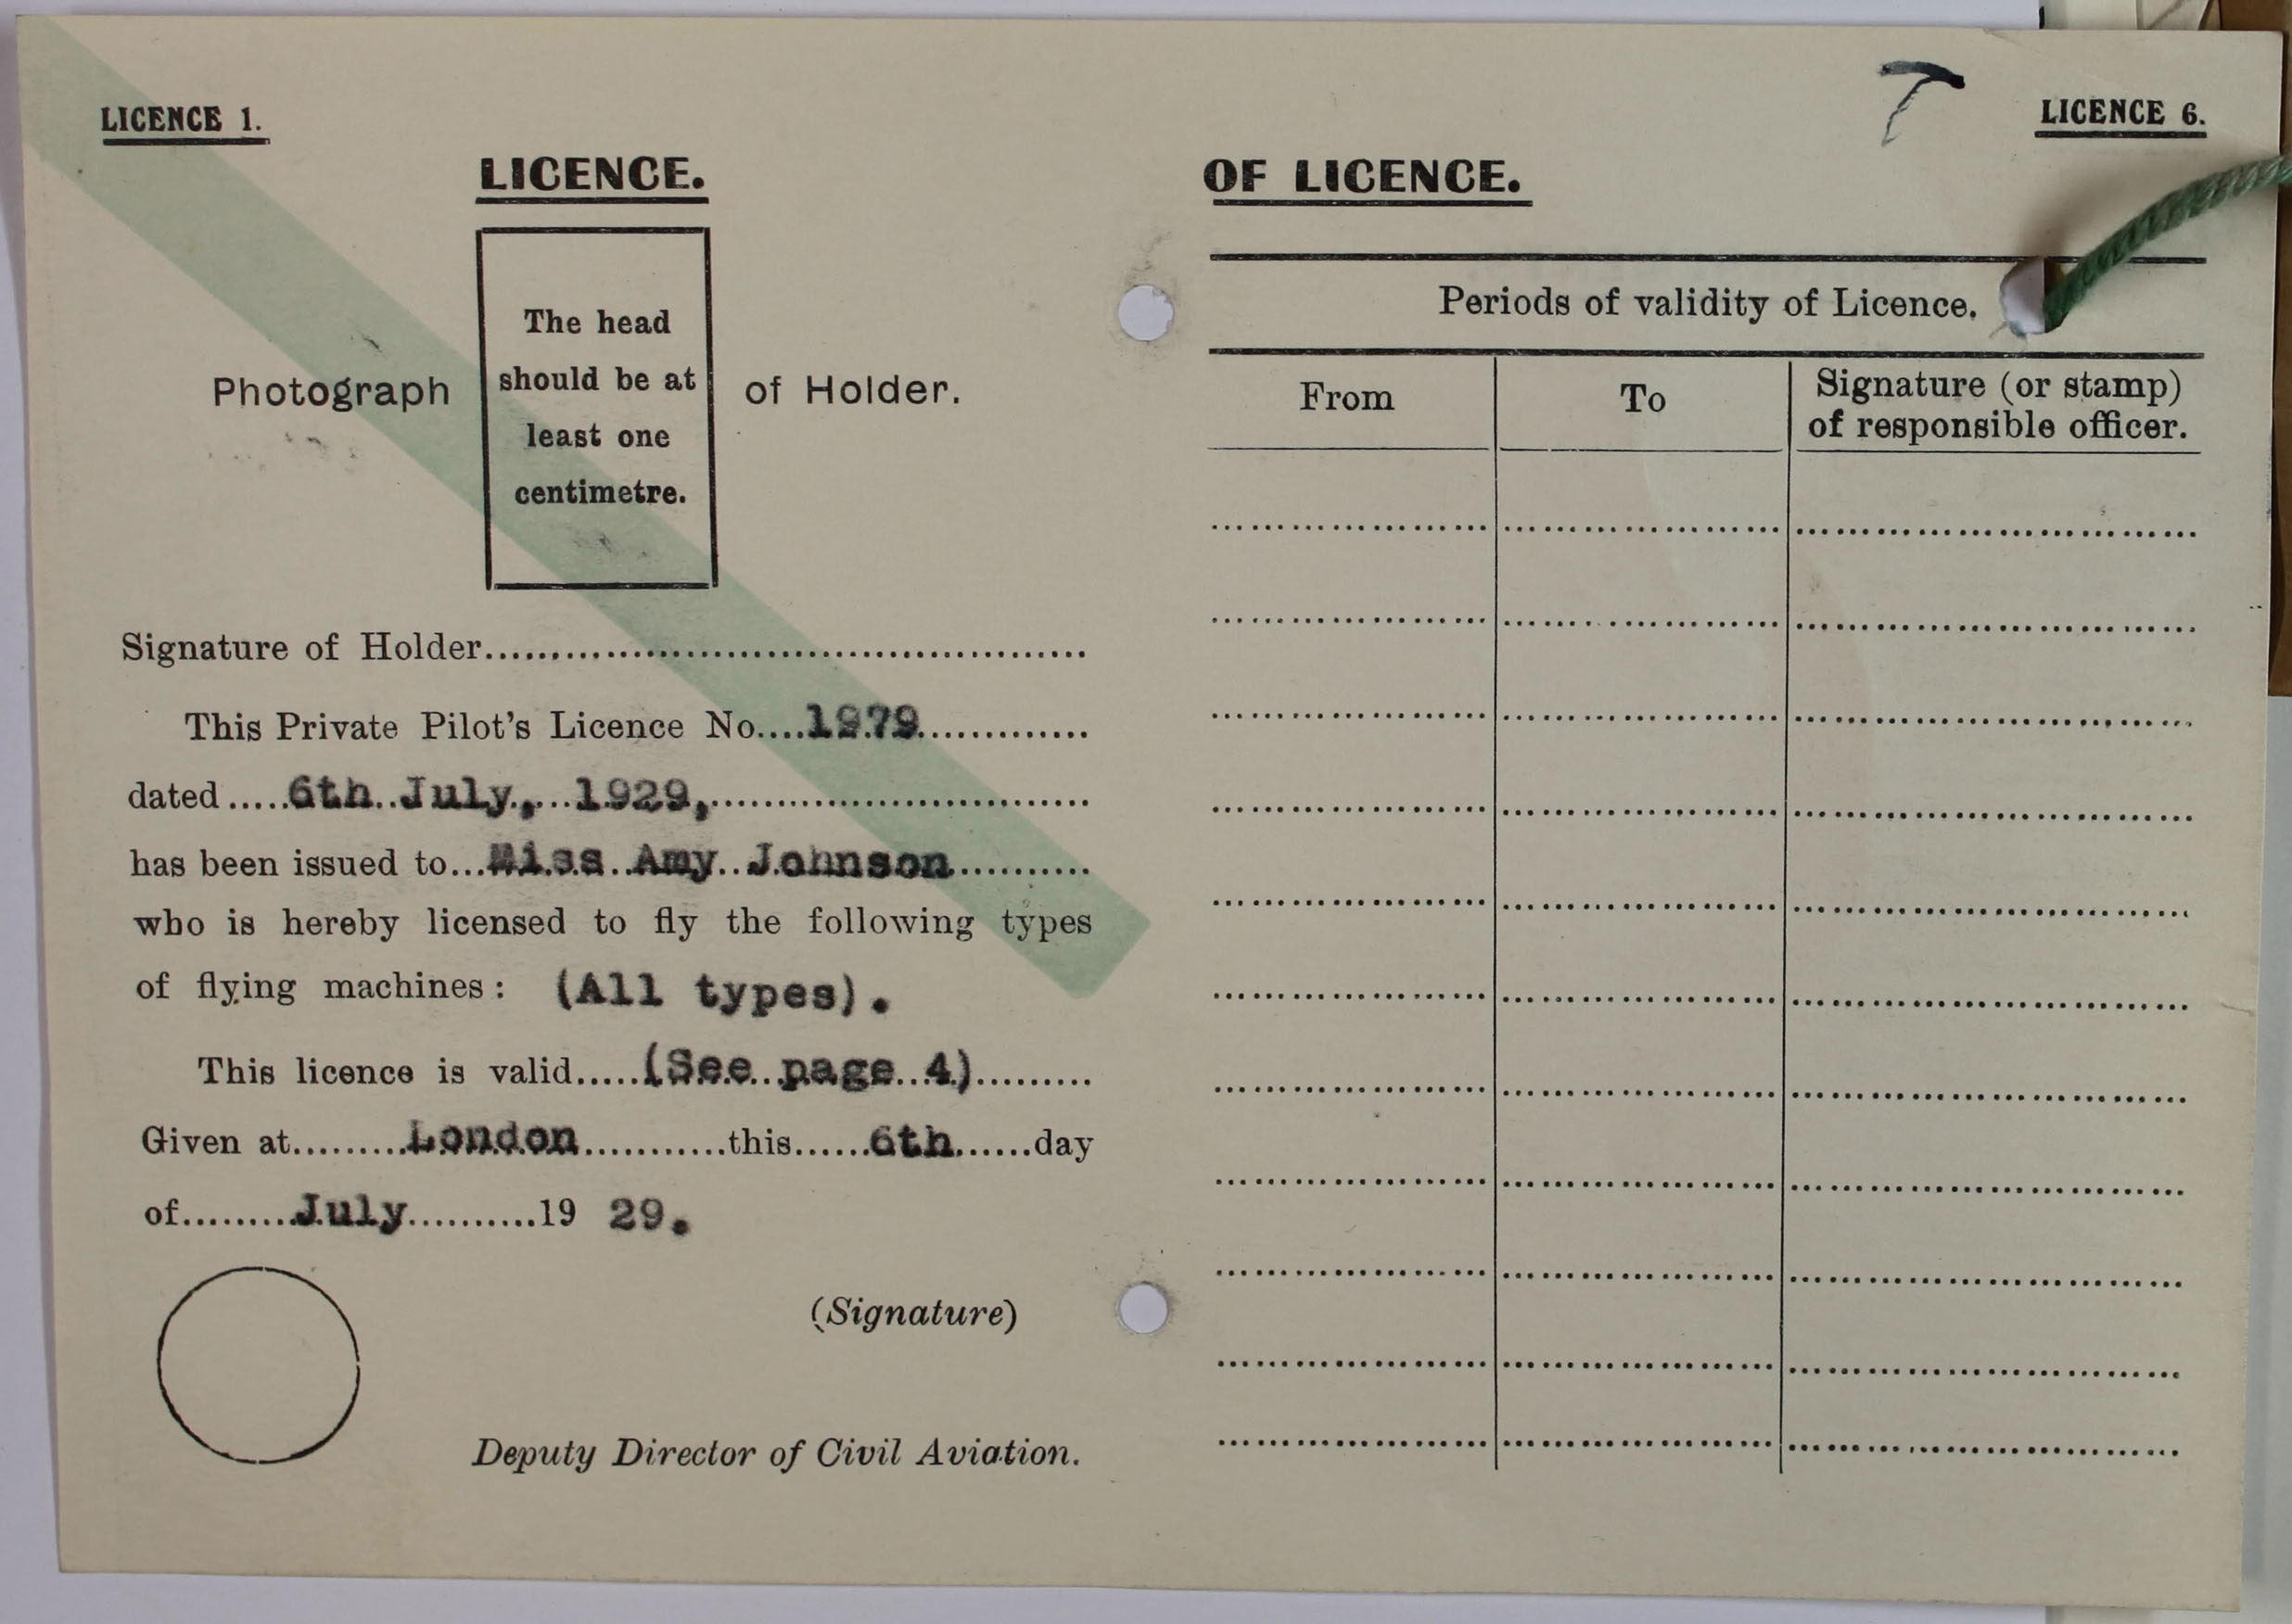 LICENCE 1.
LICENCE.
The head
should be at
least one
centimetre.
Photograph of Holder.
Signature of Holder
This Private Pilot's Licence No....1979
dated.....6th July, 1929,
has been issued to...Miss Amy Johnson
who is hereby licensed to fly the following types
of flying machines: (All types).
This licence is valid.....(See page 4)
Given at.........London............this......6th......day
of.........July..........19 29.
(Signature)
Deputy Director of Civil Aviation.
T
LICENCE 6.
OF LICENCE.
Periods of validity of Licence.
From To Signature (or stamp)
of responsible officer.